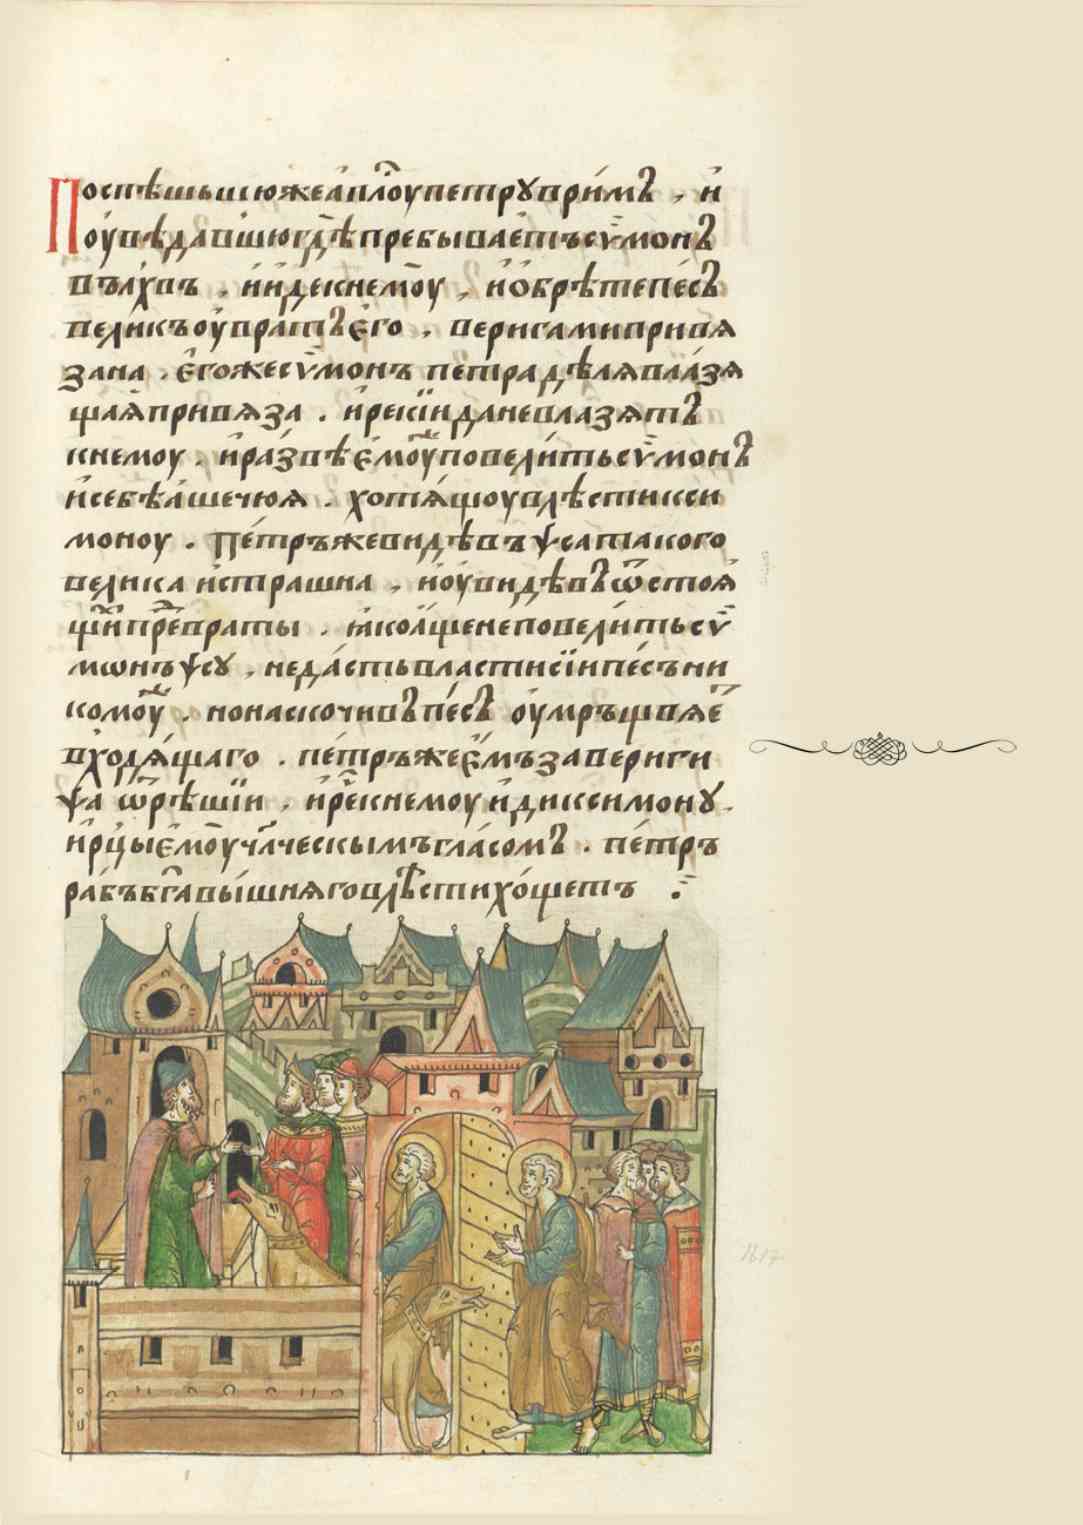 Поспѣшьшюжеапл҇оупетрꙋвримъ, и
оувѣдавшюгдѣпребываетъсѵмонъ
вълхвъ. иидекнемоу, иобрѣтепесъ
великъоувратъего, веригамипривя
зана. егожесѵмонъпетрадѣлявлазя
щаяпривяза. ирекїиданевлазятъ
кнемоу. иразвѣемоуповелитьсѵмонъ
исебѣашечюя. хотящоувлѣстикси
моноу. петръжевидѣвъѱсатакого
великаистрашна, иоувидѣвъѿстоя
щихпредвраты. якоащенеповелитьсѵ
мѡнъѱсꙋ, недастьвластисїипесъни
комоу. нонаскочивъпесъоумръщвяе
входящаго. петръжеемъзавериги
ѱа ѿрѣшїи. иречекнемоуидиксимонꙋ.
ирцыемоучл҃ческымъгласомъ. петръ
рабъбг҃авышняговлѣстихощетъ :